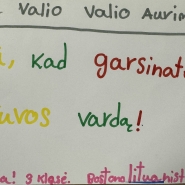 Valio Valio Aurim
, kad garsinat
uvos vardą!
a! 3 klasė. Bostono lituanist